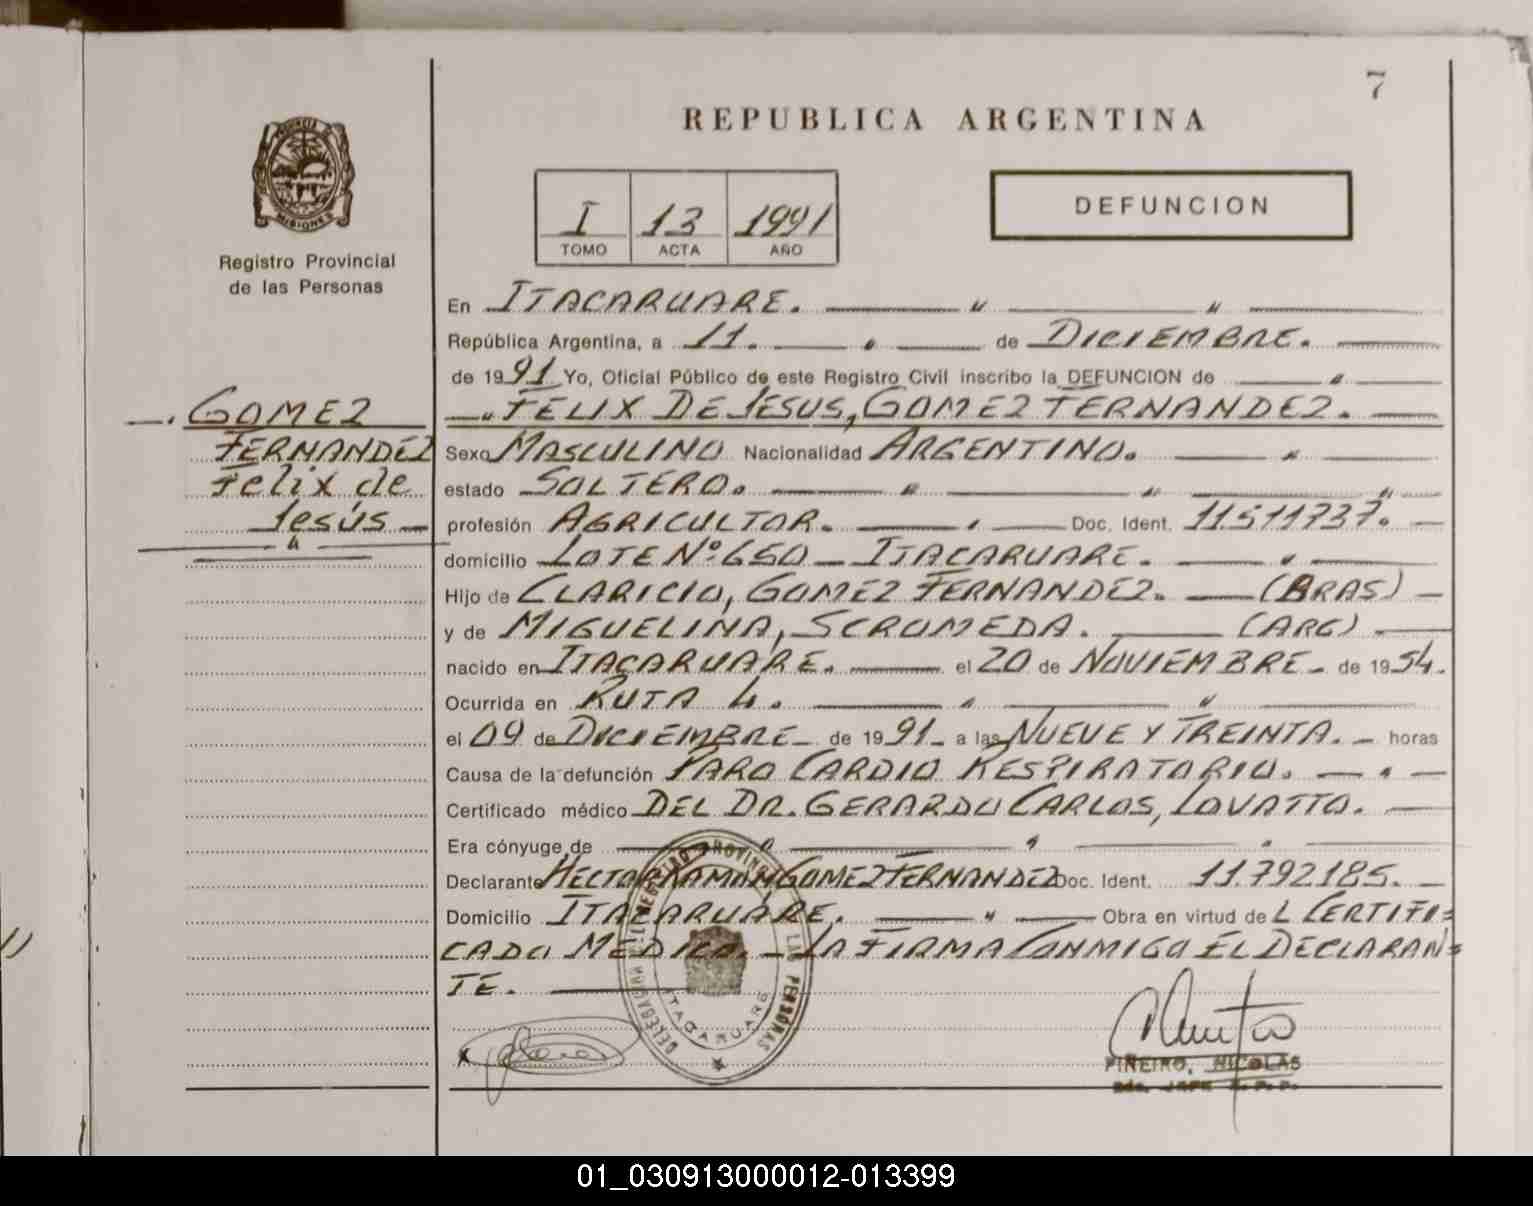 7
REPUBLICA ARGENTINA
PROVINCIA DE
MISIONES
I 13 1991
TOMO ACTA AÑO
DEFUNCION
Registro Provincial
de las Personas
GOMEZ
FERNANDEZ
Felix de
Jesús
En ITACARUARE.
República Argentina, a 11. de DICIEMBRE.
de 1991 Yo, Oficial Público de este Registro Civil inscribo la DEFUNCION de
FELIX DE JESUS, GOMEZ FERNANDEZ.
Sexo MASCULINO Nacionalidad ARGENTINO.
estado SOLTERO.
profesión AGRICULTOR. Doc. Ident. 11.511737.
domicilio LOTE Nº 660 - ITACARUARE.
Hijo de CLARICIO, GOMEZ FERNANDEZ. (BRAS)
y de MIGUELINA, SCROMEDA. (ARG)
nacido en ITACARUARE. el 20 de NOVIEMBRE - de 1954.
Ocurrida en RUTA 4.
el 09 de DICIEMBRE - de 1991 - a las NUEVE Y TREINTA. - horas
Causa de la defunción PARO CARDIO RESPIRATORIO.
Certificado médico DEL DR. GERARDO CARLOS, LOVATTO.
Era cónyuge de
Declarante HECTOR RAMON GOMEZ FERNANDEZ Doc. Ident. 11.792185.
Domicilio ITACARUARE. Obra en virtud de L CERTIFI=
CADO MEDICO. - LA FIRMA CONMIGO EL DECLARAN=
TE.
DELEGACION DEL REGISTRO PROVINCIAL DE LAS PERSONAS
ITACARUARE
x
PIÑEIRO, NICOLAS
01_030913000012-013399